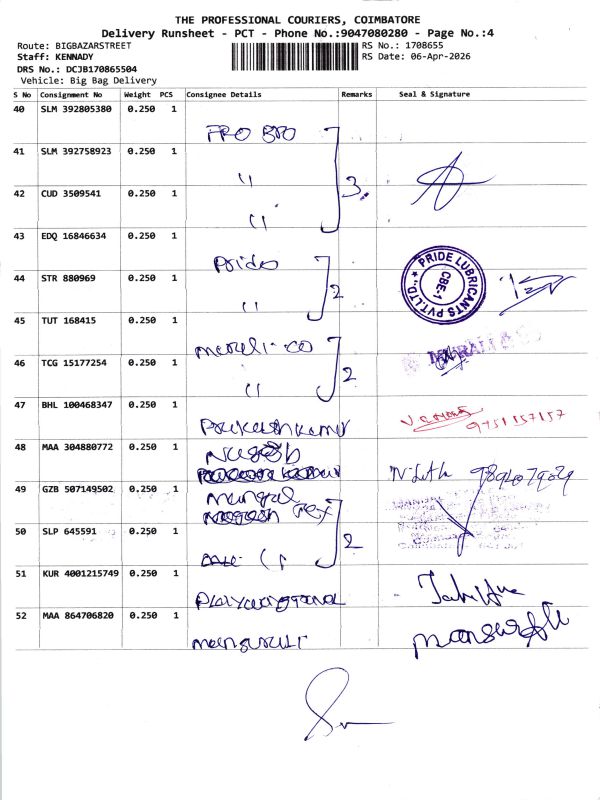 THE PROFESSIONAL COURIERS, COIMBATORE
Delivery Runsheet - PCT - Phone No.:9047080280 - Page No.:4
Route: BIGBAZARSTREET
RS No.: 1708655
Staff: KENNADY
RS Date: 06-Apr-2026
DRS No.: DCJB170865504
Vehicle: Big Bag Delivery
S No Consignment No Weight PCS Consignee Details Remarks Seal & Signature
40 SLM 392805380 0.250 1
PRO BRO
41 SLM 392758923 0.250 1
" 3
42 CUD 3509541 0.250 1
"
43 EDQ 16846634 0.250 1
Pride
PRIDE LUBRICANTS PVT.LTD.
CBE-1
44 STR 880969 0.250 1
" 2
45 TUT 168415 0.250 1
Murali-co
46 TCG 15177254 0.250 1
" 2
47 BHL 100468347 0.250 1
Prakashkumar
9751157157
48 MAA 304880772 0.250 1
49 GZB 507149502 0.250 1
Mangal
Tex
50 SLP 645591 0.250 1
" 2
51 KUR 4001215749 0.250 1
52 MAA 864706820 0.250 1